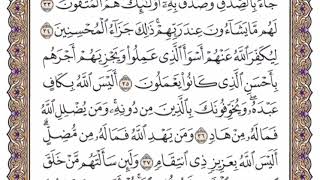 جَآءَ بِٱلصِّدۡقِ وَصَدَّقَ بِهِۦٓ أُوْلَٰٓئِكَ هُمُ ٱلۡمُتَّقُونَ ٣٣
لَهُم مَّا يَشَآءُونَ عِندَ رَبِّهِمۡۚ ذَٰلِكَ جَزَآءُ ٱلۡمُحۡسِنِينَ ٣٤
لِيُكَفِّرَ ٱللَّهُ عَنۡهُمۡ أَسۡوَأَ ٱلَّذِي عَمِلُواْ وَيَجۡزِيَهُمۡ أَجۡرَهُم
بِأَحۡسَنِ ٱلَّذِي كَانُواْ يَعۡمَلُونَ ٣٥ أَلَيۡسَ ٱللَّهُ بِكَافٍ
عَبۡدَهُۥۖ وَيُخَوِّفُونَكَ بِٱلَّذِينَ مِن دُونِهِۦۚ وَمَن يُضۡلِلِ ٱللَّهُ
فَمَا لَهُۥ مِنۡ هَادٖ ٣٦ وَمَن يَهۡدِ ٱللَّهُ فَمَا لَهُۥ مِن مُّضِلٍّۗ
أَلَيۡسَ ٱللَّهُ بِعَزِيزٖ ذِي ٱنتِقَامٖ ٣٧ وَلَئِن سَأَلۡتَهُم مَّنۡ خَلَقَ